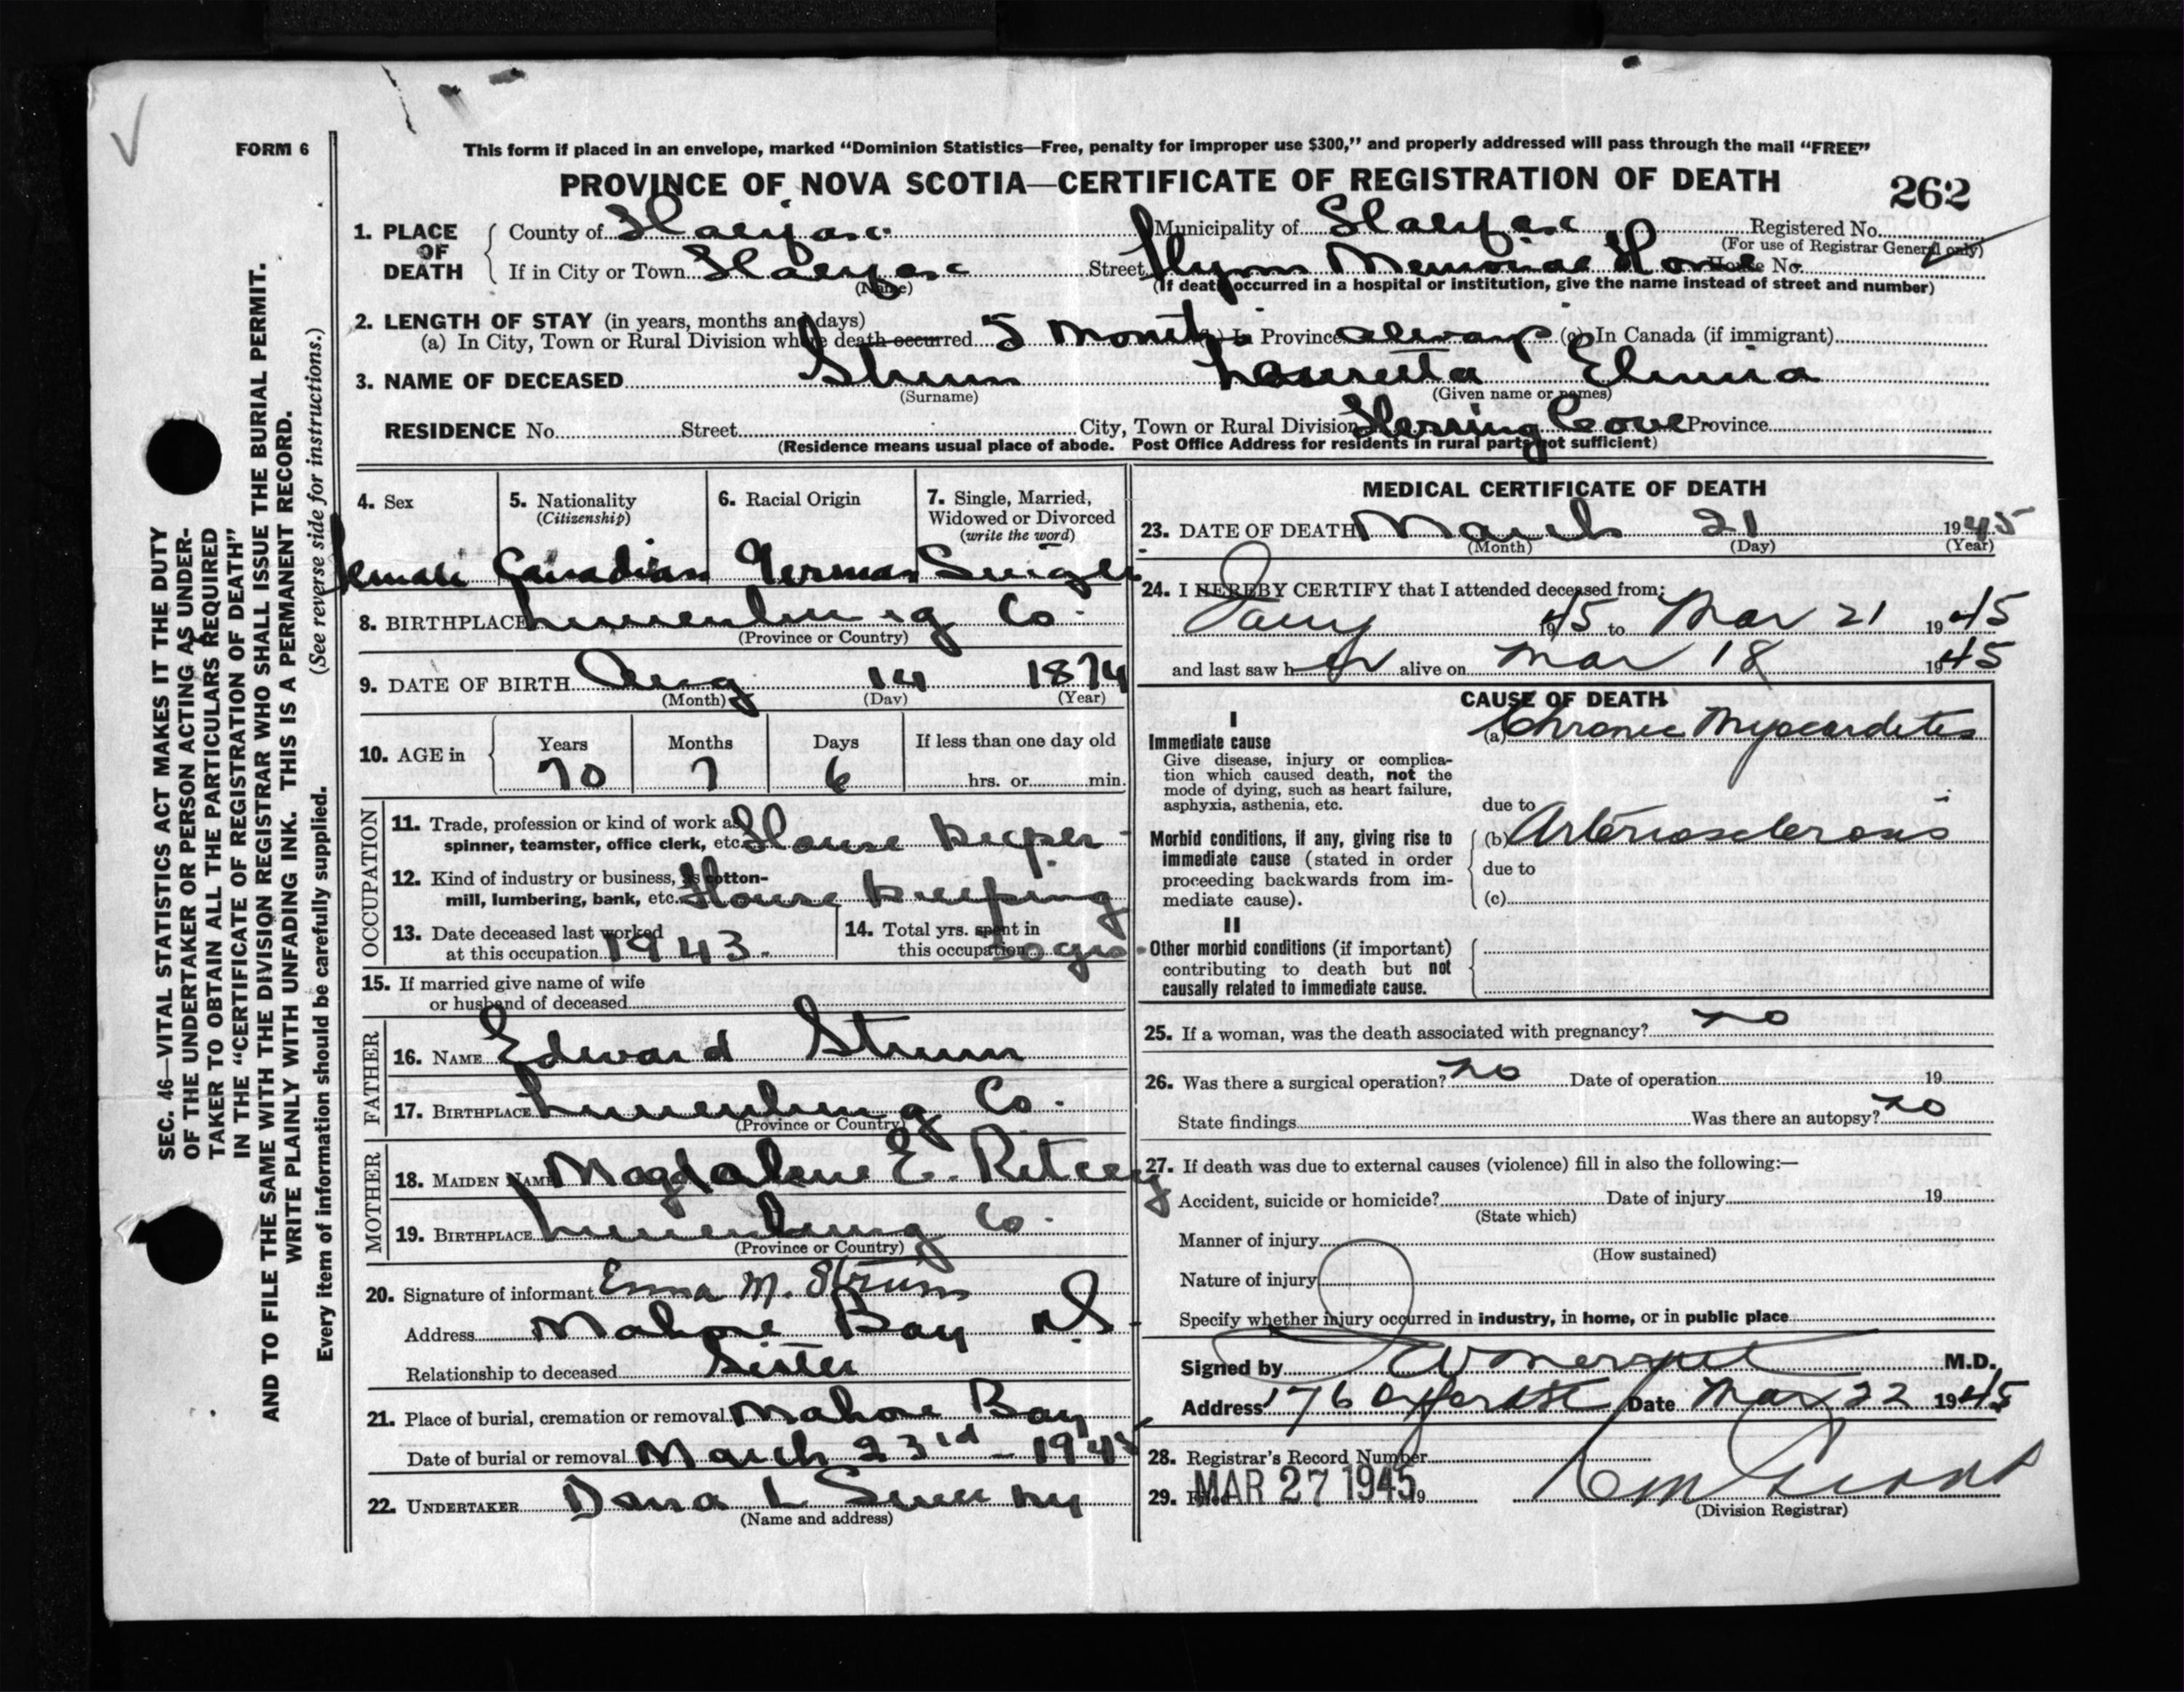 FORM 6
This form if placed in an envelope, marked "Dominion Statistics—Free, penalty for improper use $300," and properly addressed will pass through the mail "FREE"
PROVINCE OF NOVA SCOTIA—CERTIFICATE OF REGISTRATION OF DEATH
262
1. PLACE OF DEATH
County of Halifax Municipality of Halifax Registered No.
(For use of Registrar General only)
If in City or Town Halifax Street Flynn Memorial Home House No.
(Name) (If death occurred in a hospital or institution, give the name instead of street and number)
2. LENGTH OF STAY (in years, months and days)
(a) In City, Town or Rural Division where death occurred 5 months (b) In Province always (c) In Canada (if immigrant)
3. NAME OF DECEASED Strum Lauretta
(Surname) (Given name or names)
RESIDENCE No. Street City, Town or Rural Division Herring Cove Province
(Residence means usual place of abode. Post Office Address for residents in rural parts not sufficient)
4. Sex
5. Nationality (Citizenship)
6. Racial Origin
7. Single, Married, Widowed or Divorced (write the word)
Female Canadian German Single
8. BIRTHPLACE Lunenburg Co.
(Province or Country)
9. DATE OF BIRTH Aug 14 1874
(Month) (Day) (Year)
10. AGE in Years Months Days If less than one day old
70 7 6 hrs. or min.
OCCUPATION
11. Trade, profession or kind of work as
spinner, teamster, office clerk, etc. House Keeper
12. Kind of industry or business, as cotton-
mill, lumbering, bank, etc. House Keeping
13. Date deceased last worked
at this occupation 1943.
14. Total yrs. spent in
this occupation yrs
15. If married give name of wife
or husband of deceased
FATHER
16. NAME Edward Strum
17. BIRTHPLACE Lunenburg Co.
(Province or Country)
MOTHER
18. MAIDEN NAME Magdalene E. Ritcey
19. BIRTHPLACE Lunenburg Co.
(Province or Country)
20. Signature of informant Emma M. Strum
Address Mahone Bay N.S
Relationship to deceased Sister
21. Place of burial, cremation or removal Mahone Bay
Date of burial or removal March 23rd - 1945
22. UNDERTAKER Dana L Sweeny
(Name and address)
MEDICAL CERTIFICATE OF DEATH
23. DATE OF DEATH March 21 1945
(Month) (Day) (Year)
24. I HEREBY CERTIFY that I attended deceased from:
1945 to Mar 21 1945
and last saw her alive on Mar 18 1945
CAUSE OF DEATH
I
Immediate cause
Give disease, injury or complica-
tion which caused death, not the
mode of dying, such as heart failure,
asphyxia, asthenia, etc.
(a) Chronic Myocarditis
due to
Morbid conditions, if any, giving rise to
immediate cause (stated in order
proceeding backwards from im-
mediate cause).
(b) Arteriosclerosis
due to
(c)
II
Other morbid conditions (if important)
contributing to death but not
causally related to immediate cause.
25. If a woman, was the death associated with pregnancy? no
26. Was there a surgical operation? no Date of operation 19
State findings Was there an autopsy? no
27. If death was due to external causes (violence) fill in also the following:—
Accident, suicide or homicide? Date of injury 19
(State which)
Manner of injury
(How sustained)
Nature of injury
Specify whether injury occurred in industry, in home, or in public place
Signed by M.D.
Address 176 Oxford St Date Mar 22 1945
28. Registrar's Record Number
29. Filed MAR 27 1945 19
(Division Registrar)
SEC. 46—VITAL STATISTICS ACT MAKES IT THE DUTY
OF THE UNDERTAKER OR PERSON ACTING AS UNDER-
TAKER TO OBTAIN ALL THE PARTICULARS REQUIRED
IN THE "CERTIFICATE OF REGISTRATION OF DEATH"
AND TO FILE THE SAME WITH THE DIVISION REGISTRAR WHO SHALL ISSUE THE BURIAL PERMIT.
WRITE PLAINLY WITH UNFADING INK. THIS IS A PERMANENT RECORD.
Every item of information should be carefully supplied. (See reverse side for instructions.)